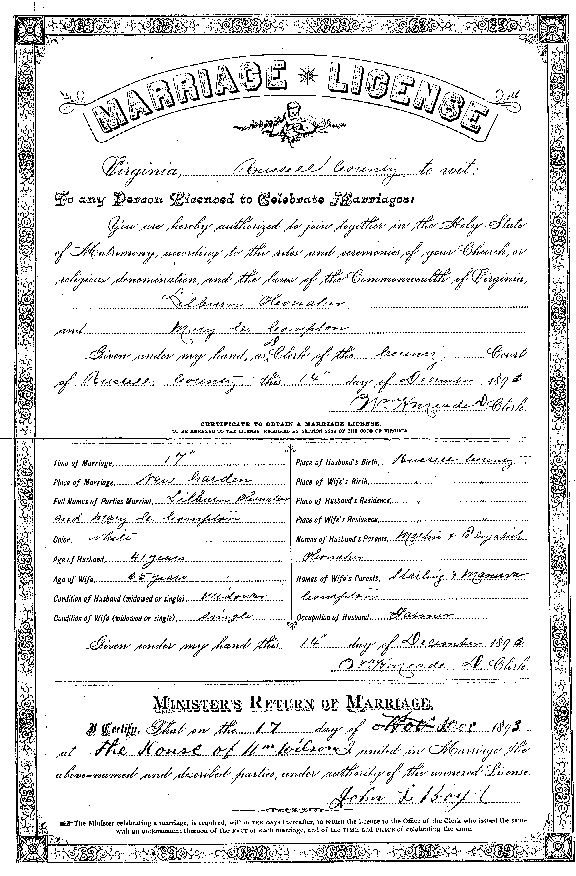 MARRIAGE LICENSE
Virginia, Russell County to wit:
To any Person Licensed to Celebrate Marriages:
You are hereby authorized to join together in the Holy State
of Matrimony, according to the rites and ceremonies of your Church, or
religious denomination, and the laws of the Commonwealth of Virginia,
Lilburn Honaker
and Mary Compton
Given under my hand, as Clerk of the County Court
of Russell County this 14" day of December 1893
Kincade D. Clerk
CERTIFICATE TO OBTAIN A MARRIAGE LICENSE,
TO BE ANNEXED TO THE LICENSE, REQUIRED BY SECTION OF THE CODE OF VIRGINIA
Time of Marriage, 17"
Place of Marriage, New Garden
Full Names of Parties Married, Lilburn Honaker
and Mary Compton
Color, White
Age of Husband, 41 years
Age of Wife, years
Condition of Husband (widowed or single), Widower
Condition of Wife (widowed or single), Single
Place of Husband's Birth, Russell County
Place of Wife's Birth, " "
Place of Husband's Residence, " "
Place of Wife's Residence, " "
Names of Husband's Parents, Martin & Elizabeth
Honaker
Names of Wife's Parents, Sterling &
Compton
Occupation of Husband, Farmer
Given under my hand this 14" day of December 1893
Kincade D. Clerk
MINISTER'S RETURN OF MARRIAGE.
I Certify, That on the 17 day of Dec 1893
at the House of Wm Wilson I united in Marriage the
above-named and described parties, under authority of the annexed License.
John
The Minister celebrating a marriage, is required, within TEN days thereafter, to return the License to the Office of the Clerk who issued the same
with an endorsement thereon of the FACT of such marriage, and of the TIME and PLACE of celebrating the same.